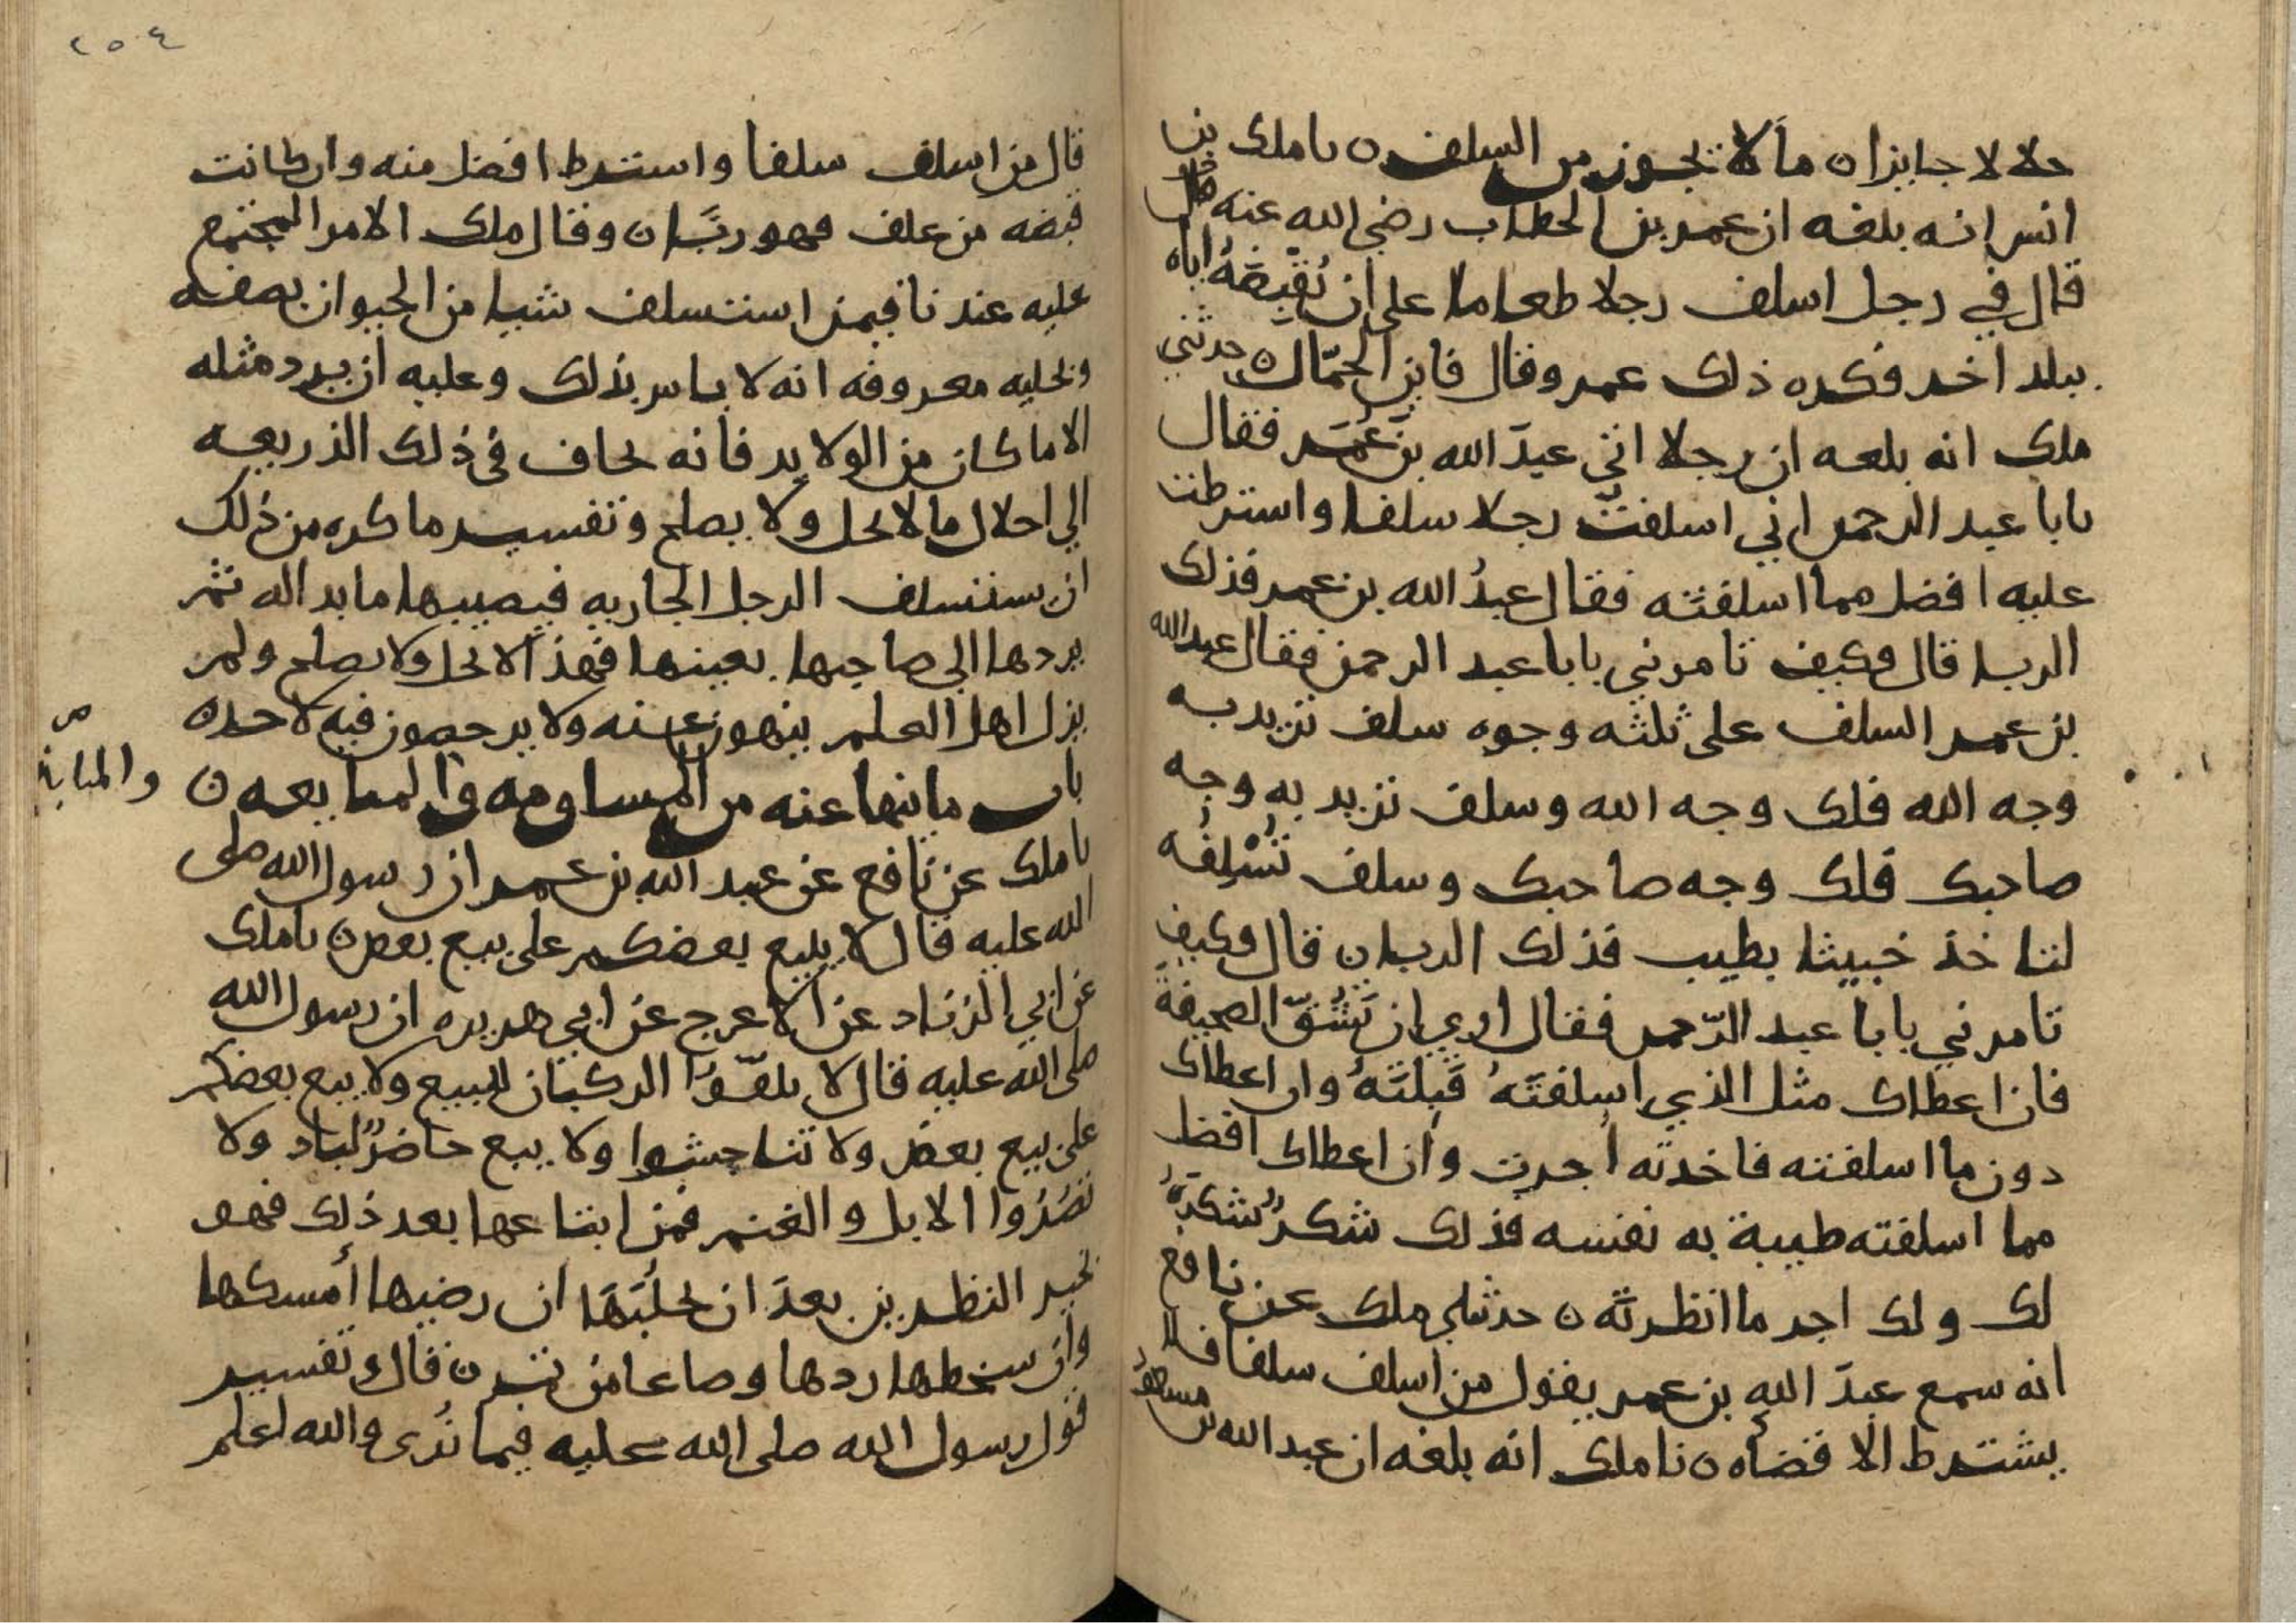 حلالا جايزا ن ما لا تجوز من السلف ن نا ملك بن
انس انه بلغه ان عمر بن الخطاب رضي الله عنه
قال في رجل اسلف رجلا طعاما على ان يقبضه اياه
ببلد اخر فكره ذلك عمر وقال فاين الحمال ن حدثني
ملك انه بلغه ان رجلا اتى عبد الله بن عمر فقال
يابا عبد الرحمن اني اسلفت رجلا سلفا واشترطت
عليه افضل مما اسلفته فقال عبد الله بن عمر فذلك
الربا قال فكيف تامرني يابا عبد الرحمن فقال عبد الله
بن عمر السلف على ثلثه وجوه سلف تريد به
وجه الله فلك وجه الله وسلف تريد به وجه
صاحبك فلك وجه صاحبك وسلف تسلفه
لتاخذ خبيثا بطيب فذلك الربا ن قال فكيف
تامرني يابا عبد الرحمن فقال ارى ان تشق الصحيفة
فان اعطاك مثل الذي اسلفته قبلته وان اعطاك
دون ما اسلفته فاخذته اجرت وان اعطاك افضل
مما اسلفته طيبة به نفسه فذلك شكر شكره
لك ولك اجر ما انظرته ن حدثني ملك عن نافع
انه سمع عبد الله بن عمر يقول من اسلف سلفا فلا
يشترط الا قضاه ن نا ملك انه بلغه ان عبد الله بن مسعود
٢٥٤
قال من اسلف سلفا واشترط افضل منه وان كانت
قبضه من علف فهو ربا ن وقال ملك الامر المجتمع
عليه عندنا فيمن استسلف شيا من الحيوان بصفه
وتحليه معروفه انه لا باس بذلك وعليه ان يرد مثله
الا ما كان من الولايد فانه يخاف في ذلك الذريعه
الى احلال ما لا يحل ولا يصلح وتفسير ما كره من ذلك
ان يستسلف الرجل الجاريه فيصيبها ما بدا له ثم
يردها الى صاحبها بعينها فهذا لا يحل ولا يصلح ولم
يزل اهل العلم ينهون عنه ولا يرخصون فيه لاحد ن
باب ما ينها عنه من المساومه والمبايعه ن
نا ملك عن نافع عن عبد الله بن عمر ان رسول الله صلى
الله عليه قال لا يبيع بعضكم على بيع بعض ن نا ملك
عن ابي الزناد عن الاعرج عن ابي هريره ان رسول الله
صلى الله عليه قال لا تلقوا الركبان للبيع ولا يبع بعضكم
على بيع بعض ولا تناجشوا ولا يبع حاضر لباد ولا
تصروا الابل والغنم فمن ابتاعها بعد ذلك فهو
بخير النظرين بعد ان يحلبها ان رضيها امسكها
وان سخطها ردها وصاعا من تمر ن قال وتفسير
قول رسول الله صلى الله عليه فيما نرى والله اعلم